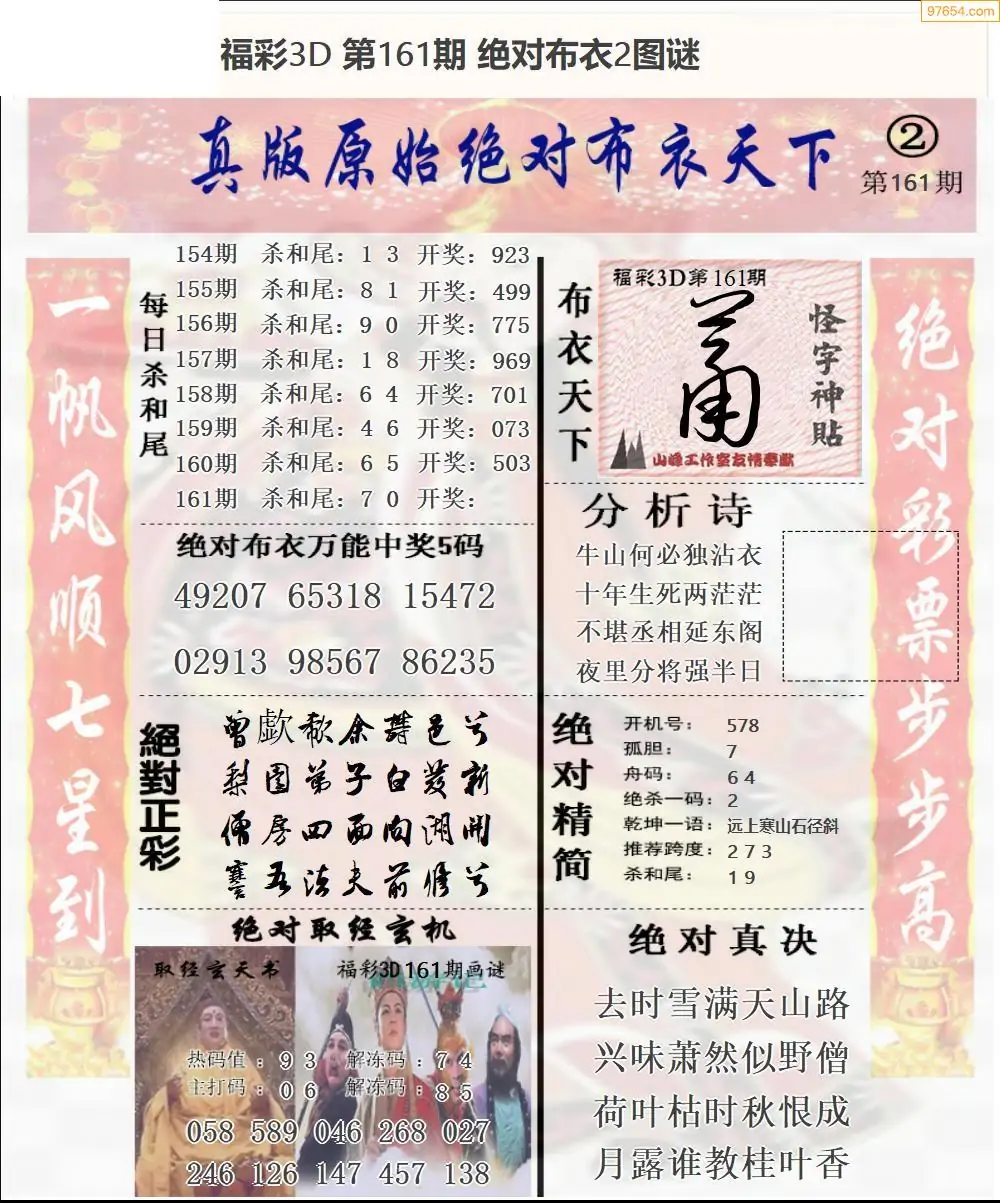 97654.com
福彩3D 第161期 绝对布衣2图谜
真版原始绝对布衣天下
②
第161期
一帆风顺七星到
每日杀和尾
154期 杀和尾：1 3 开奖：923
155期 杀和尾：8 1 开奖：499
156期 杀和尾：9 0 开奖：775
157期 杀和尾：1 8 开奖：969
158期 杀和尾：6 4 开奖：701
159期 杀和尾：4 6 开奖：073
160期 杀和尾：6 5 开奖：503
161期 杀和尾：7 0 开奖：
绝对布衣万能中奖5码
49207 65318 15472
02913 98567 86235
絕對正彩
梨园弟子白发新
僧房四面向湖开
謇吾法夫前修兮
绝对取经玄机
取经玄天书
福彩3D161期画谜
热码值：9 3 解冻码：7 4
主打码：0 6 解冻码：8 5
058 589 046 268 027
246 126 147 457 138
布衣天下
福彩3D第161期
怪字神贴
山峰工作室友情奉献
分析诗
牛山何必独沾衣
十年生死两茫茫
不堪丞相延东阁
夜里分将强半日
绝对精简
开机号：578
孤胆：7
舟码：6 4
绝杀一码：2
乾坤一语：远上寒山石径斜
推荐跨度：2 7 3
杀和尾：1 9
绝对真决
去时雪满天山路
兴味萧然似野僧
荷叶枯时秋恨成
月露谁教桂叶香
绝对彩票步步高